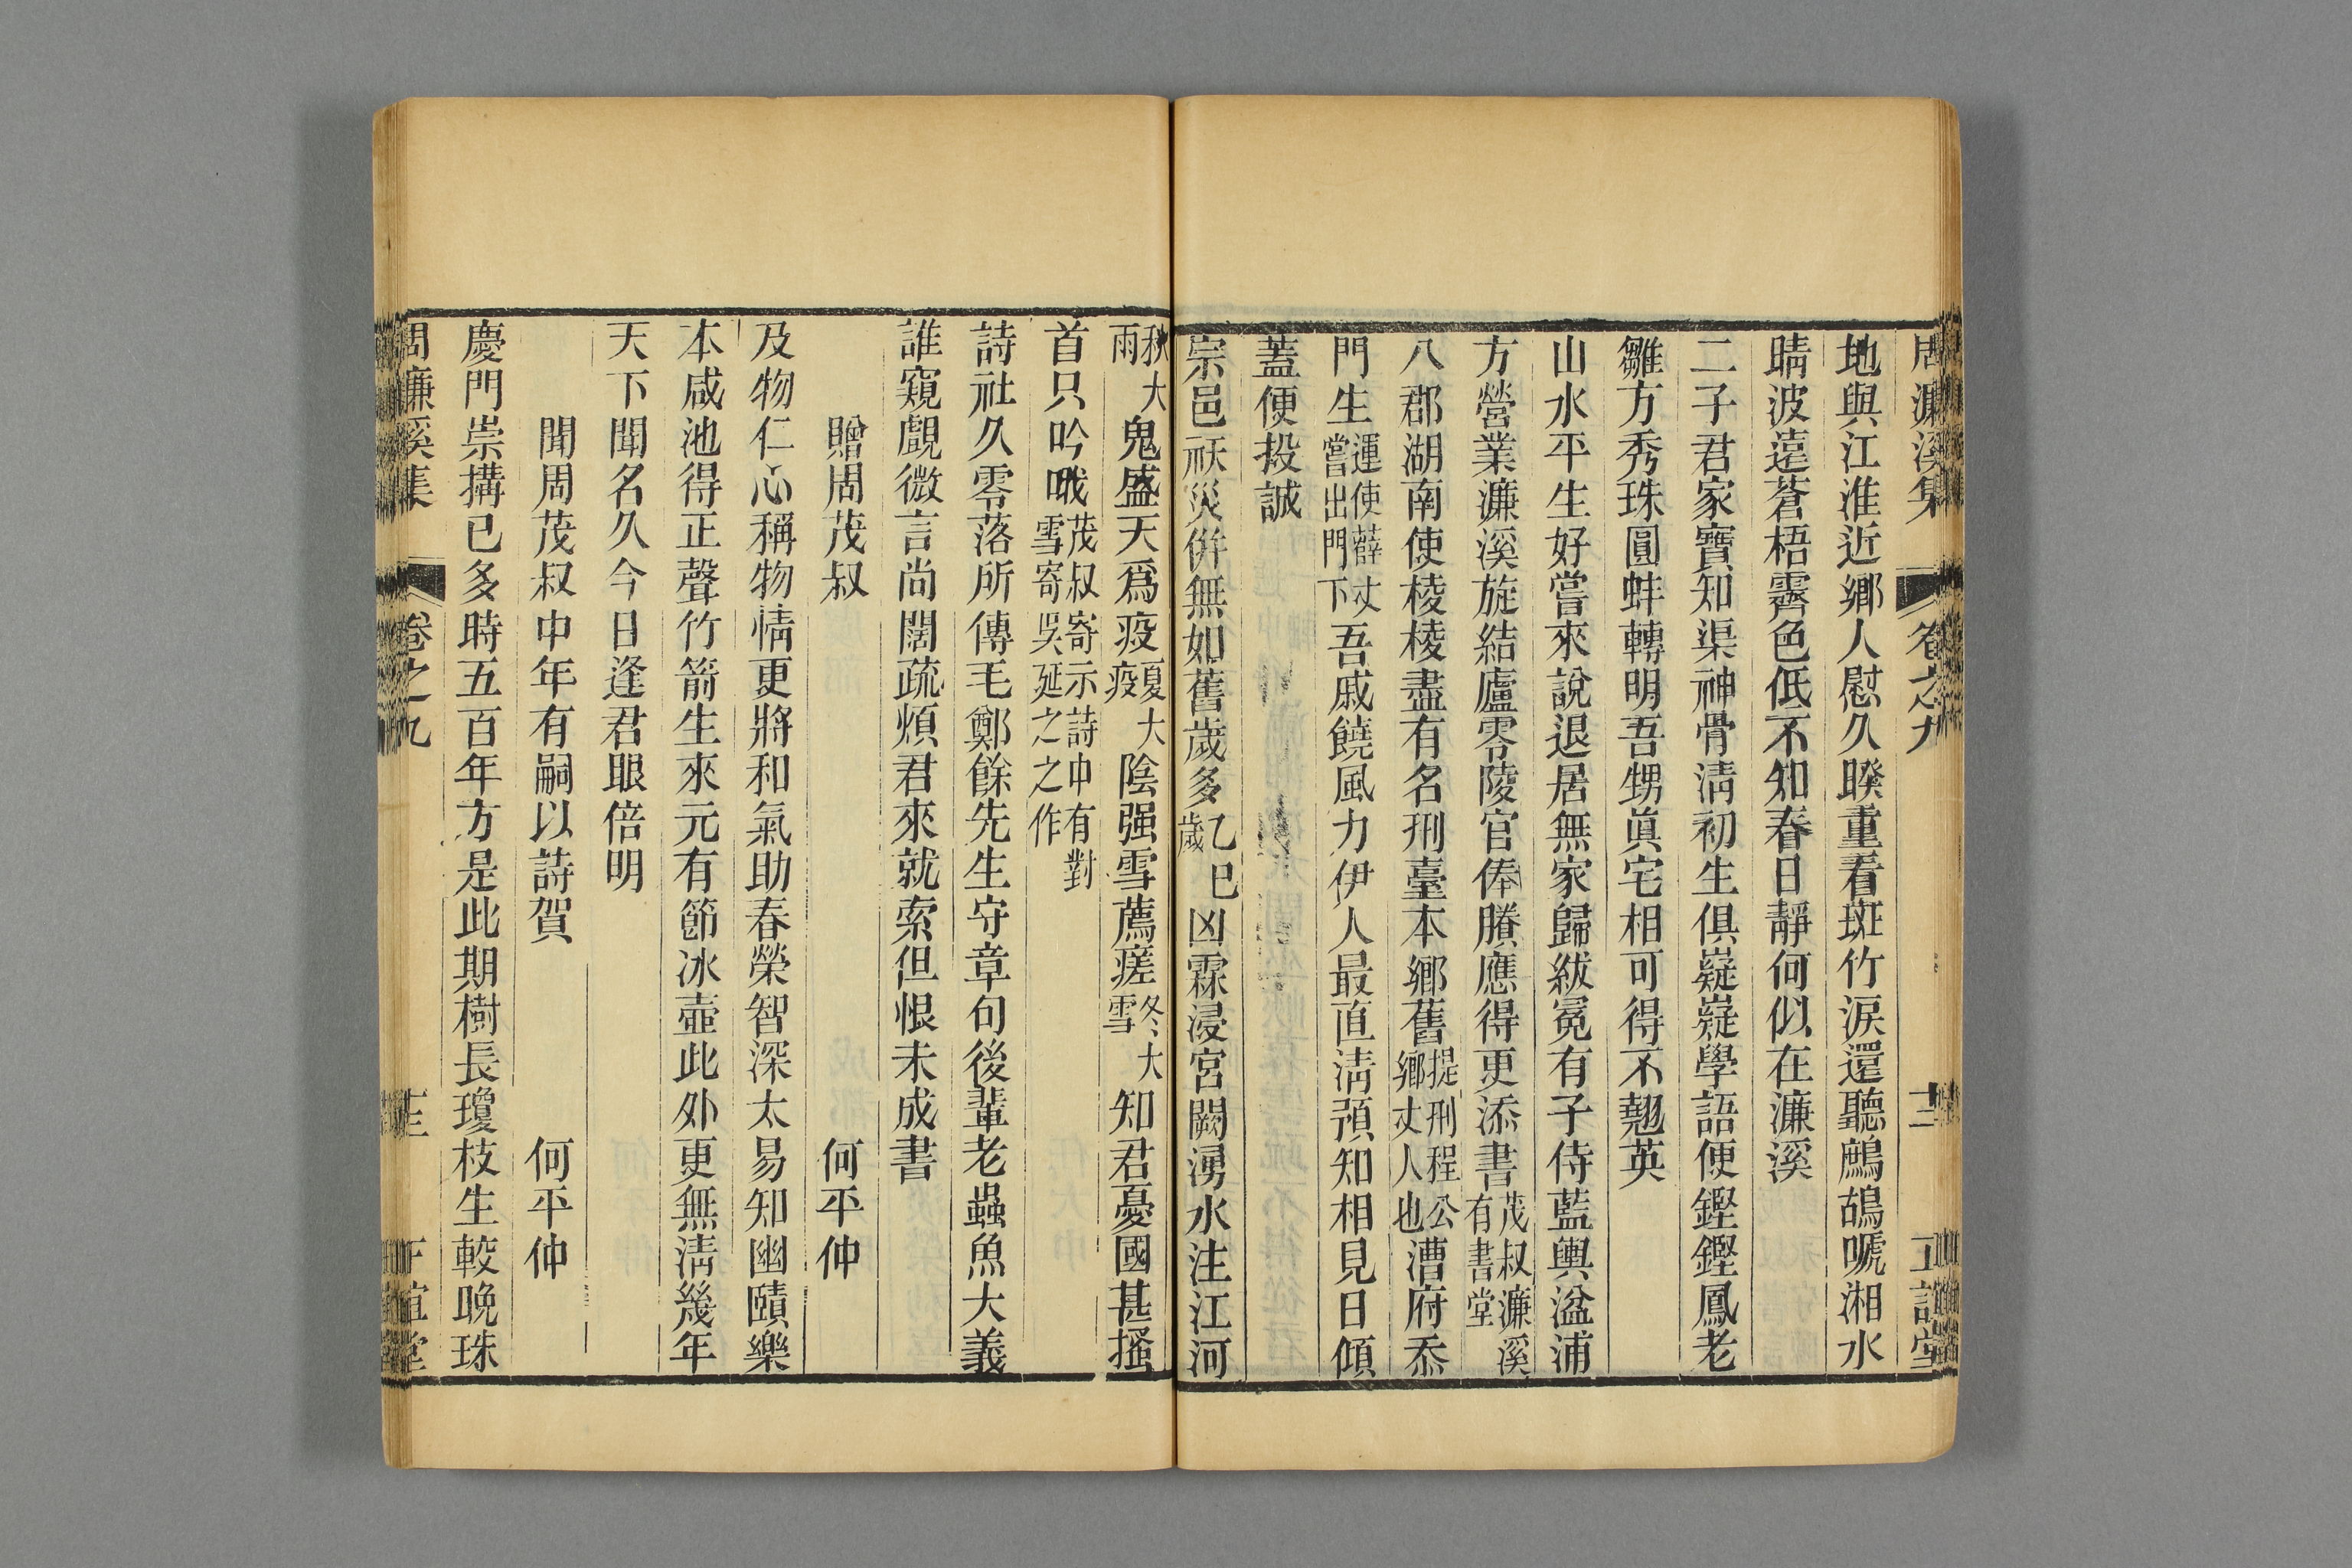 周濂溪集 卷之九 十二 正誼堂
地與江淮近鄉人慰久睽重看斑竹淚還聽鷓鴣嗁湘水
晴波遠蒼梧霽色低不知春日靜何似在濂溪
二子君家寶知渠神骨淸初生俱嶷嶷學語便鏗鏗鳳老
雛方秀珠圓蚌轉明吾甥眞宅相可得不翹英
山水平生好嘗來說退居無家歸紱冕有子侍藍輿湓浦
方營業濂溪旋結廬零陵官俸賸應得更添書茂叔濂溪有書堂
八郡湖南使棱棱盡有名刑臺本鄉舊提刑程公鄉丈人也漕府忝
門生運使薛丈嘗出門下吾戚饒風力伊人最直淸預知相見日傾
蓋便投誠
宗邑祅災併無如舊歲多乙巳歲凶霖浸宮闕湧水注江河
秋大雨鬼盛天爲疫夏大疫陰强雪薦瘥冬大雪知君憂國甚搔
首只吟哦茂叔寄示詩中有對雪寄吳延之之作
詩社久零落所傳毛鄭餘先生守章句後輩老蟲魚大義
誰窺覷微言尚闊疏煩君來就索但恨未成書
贈周茂叔 何平仲
及物仁心稱物情更將和氣助春榮智深太易知幽賾樂
本咸池得正聲竹箭生來元有節冰壺此外更無淸幾年
天下聞名久今日逢君眼倍明
聞周茂叔中年有嗣以詩賀 何平仲
慶門崇搆已多時五百年方是此期樹長瓊枝生較晚珠
周濂溪集 卷之九 十三 正誼堂